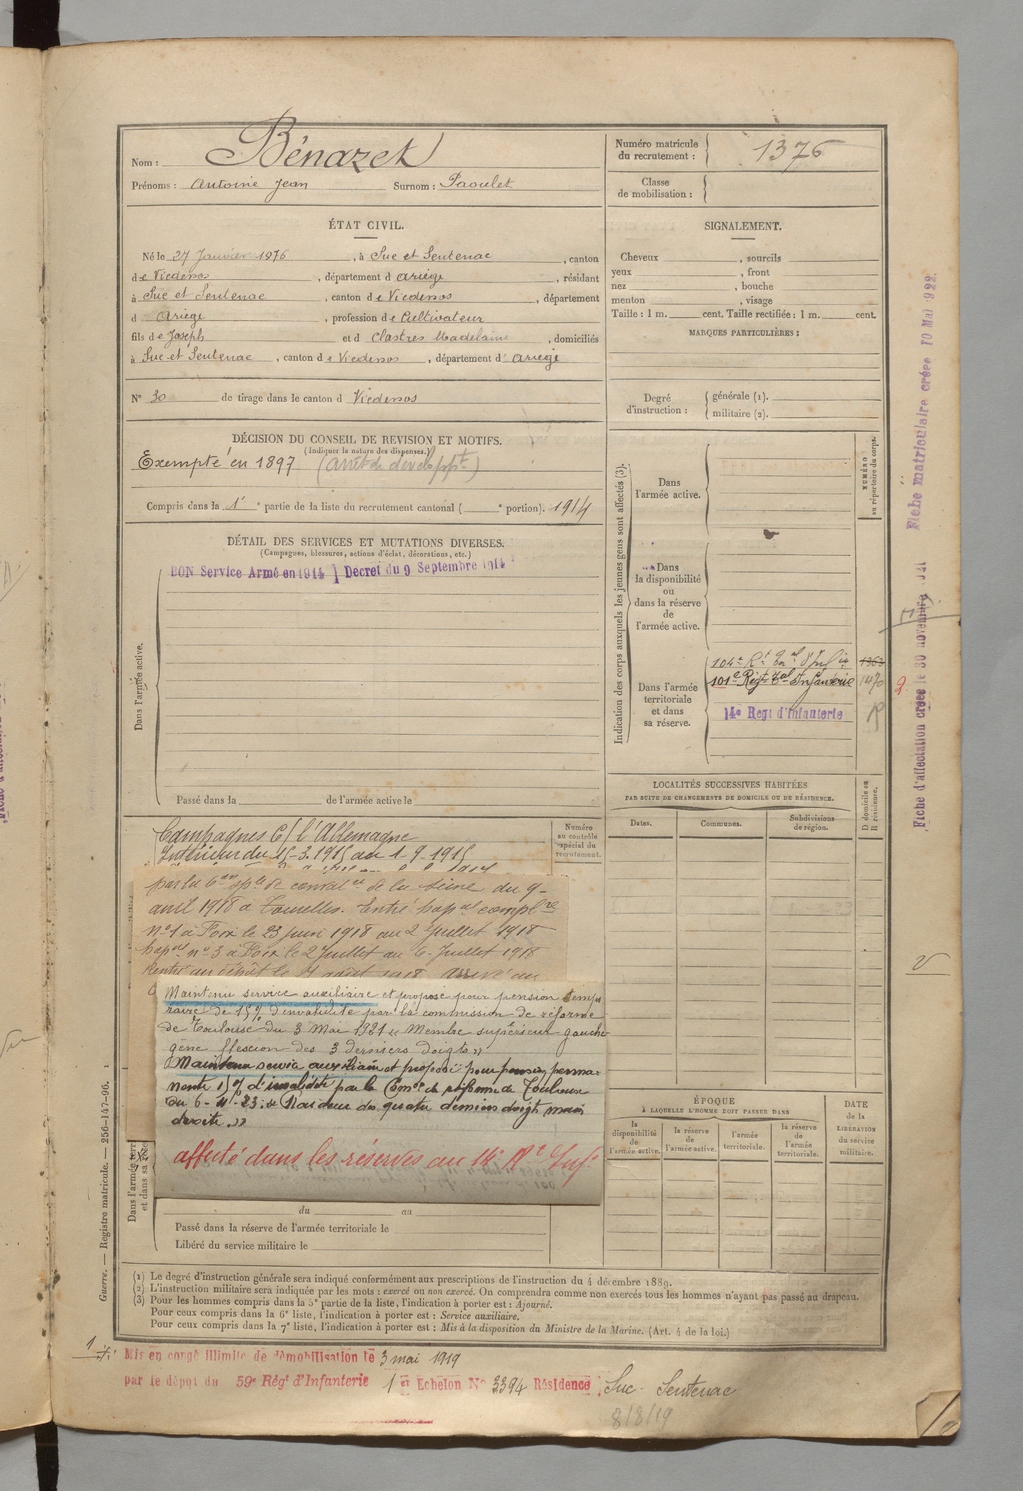 Nom : Bénazet
Prénoms : Antoine Jean Surnom : Paoulet
Numéro matricule du recrutement : 1376
Classe de mobilisation :
ÉTAT CIVIL.
Né le 27 Janvier 1876, à Suc et Sentenac, canton
de Vicdessos, département d Ariège, résidant
à Suc et Sentenac, canton de Vicdessos, département
d Ariège, profession de Cultivateur
fils de Joseph et d Clastres Madelaine, domiciliés
à Suc et Sentenac, canton de Vicdessos, département d' Ariège
N° 30 de tirage dans le canton d Vicdessos
SIGNALEMENT.
Cheveux , sourcils
yeux , front
nez , bouche
menton , visage
Taille : 1 m. cent. Taille rectifiée : 1 m. cent.
MARQUES PARTICULIÈRES :
Degré d'instruction : générale (1).
militaire (2).
DÉCISION DU CONSEIL DE REVISION ET MOTIFS.
(Indiquer la nature des dispenses.)
Exempté en 1897 (arrêt de développt)
Compris dans la 1e partie de la liste du recrutement cantonal ( e portion). 1914
DÉTAIL DES SERVICES ET MUTATIONS DIVERSES.
(Campagnes, blessures, actions d'éclat, décorations, etc.)
BON Service Armé en 1914 Décret du 9 Septembre 1914
Dans l'armée active.
Passé dans la de l'armée active le
Indication des corps auxquels les jeunes gens sont affectés (3).
NUMÉRO au répertoire du corps.
Dans l'armée active.
Dans la disponibilité ou dans la réserve de l'armée active.
Dans l'armée territoriale et dans sa réserve.
104e Rt Tal d'Infie 1363
101e Régt Tal Infanterie 1470
14e Regt d'Infanterie
LOCALITÉS SUCCESSIVES HABITÉES
PAR SUITE DE CHANGEMENTS DE DOMICILE OU DE RÉSIDENCE.
Dates. Communes. Subdivisions de région. D domicile ou R résidence.
Numéro au contrôle spécial du recrutement.
Campagnes C/ l'Allemagne
Intérieur du 15-3.1915 au 1-9-1915
par la 6e
de la Seine du 9-
avril 1918 à Tourelles. Entré hopal complre
n°1 à Foix le 23 juin 1918 au 2 Juillet 1918
hopal n° 3 à Foix le 2 Juillet au 6 Juillet 1918
Rentré au dépôt le 1918 arrivé au
Maintenu service auxiliaire et proposé pour pension tempo
raire de 15% d'invalidité par la commission de réforme
de Toulouse du 3 Mai 1921 « Membre supérieur gauche
gêne flescion des 3 derniers doigts »
Maintenu service auxiliaire et proposé pour pension perma
nente 15% d'invalidité par la Comon de réforme de Toulouse
du 6-4-23. « Raideur des quatre derniers doigts main
droite. »
affecté dans les réserves au 14e Rt Infie
Dans l'armée terr et dans sa rés
du au
Passé dans la réserve de l'armée territoriale le
Libéré du service militaire le
ÉPOQUE
À LAQUELLE L'HOMME DOIT PASSER DANS
la disponibilité de l'armée active. la réserve de l'armée active. l'armée territoriale. la réserve de l'armée territoriale.
DATE de la LIBÉRATION du service militaire.
(1) Le degré d'instruction générale sera indiqué conformément aux prescriptions de l'instruction du 4 décembre 1889.
(2) L'instruction militaire sera indiquée par les mots : exercé ou non exercé. On comprendra comme non exercés tous les hommes n'ayant pas passé au drapeau.
(3) Pour les hommes compris dans la 5e partie de la liste, l'indication à porter est : Ajourné.
Pour ceux compris dans la 6e liste, l'indication à porter est : Service auxiliaire.
Pour ceux compris dans la 7e liste, l'indication à porter est : Mis à la disposition du Ministre de la Marine. (Art. 4 de la loi.)
Mis en congé illimité de démobilisation le 3 mai 1919
par le dépot du 59e Régt d'Infanterie 1er Echelon N° 3394 Résidence Suc Sentenac
8/8/19
Guerre. — Registre matricule. — 256-147-96.
Fiche d'affectation créée le 30 novembre
Fiche matriculaire créée 10 Mai 1922